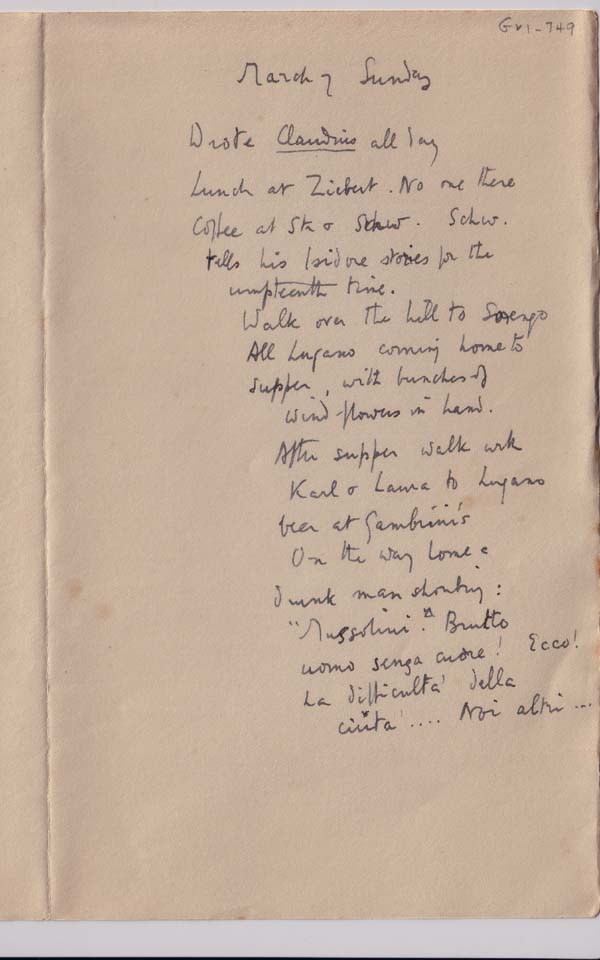 GV1-749
March 7 Sunday
Wrote Claudius all day
Lunch at Ziebert. No one there
Coffee at St. & Schw. Schw.
tells his Isidore stories for the
umpteenth time.
Walk over the hill to Sorengo
All Lugano coming home to
supper, with bunches of
wind-flowers in hand.
After supper walk with
Karl & Laura to Lugano
beer at Gambrini's
On the way home a
drunk man shouting:
"Mussolini! Brutto
uomo senza cuore! Ecco!
La difficultà della
città .... Noi altri ...